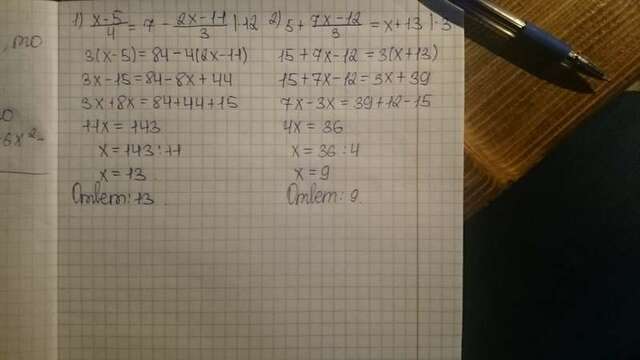 то
6x²-
1) x-5/4 = 7 - 2x-11/3 | ·12
3(x-5) = 84 - 4(2x-11)
3x-15 = 84-8x+44
3x+8x = 84+44+15
11x = 143
x = 143:11
x = 13
Ответ: 13
2) 5 + 7x-12/3 = x+13 | ·3
15+7x-12 = 3(x+13)
15+7x-12 = 3x+39
7x-3x = 39+12-15
4x = 36
x = 36:4
x = 9
Ответ: 9.